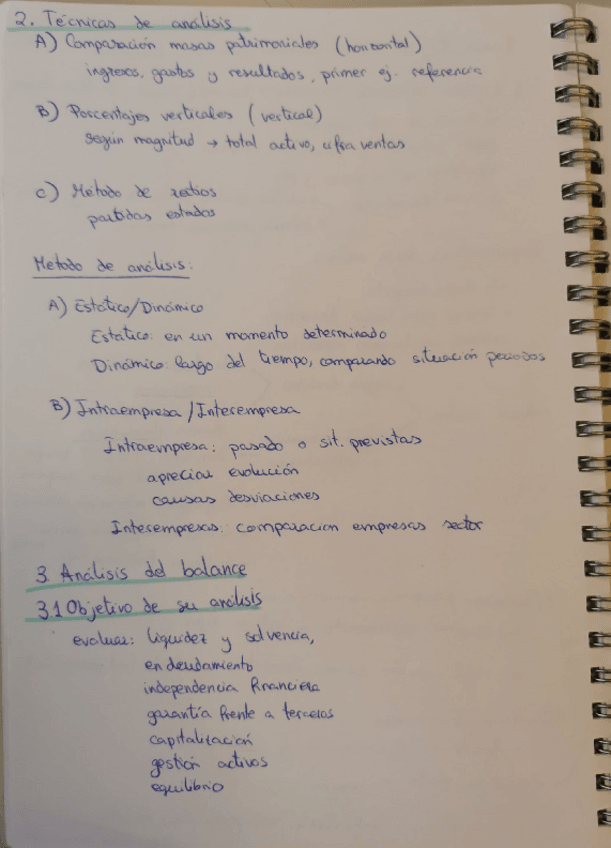 2. Técnicas de análisis
A) Comparación masas patrimoniales (horizontal)
ingresos, gastos y resultados, primer ej. referencia
B) Porcentajes verticales (vertical)
según magnitud → total activo, cifra ventas
C) Método de ratios
partidas estados
Metodo de análisis:
A) Estático/Dinámico
Estático: en un momento determinado
Dinámico: largo del tiempo, comparando situación periodos
B) Intraempresa/Interempresa
Intraempresa: pasado o sit. previstas
apreciar evolución
causas desviaciones
Interempresas: comparación empresas sector
3 Análisis del balance
3.1 Objetivo de su análisis
evaluar: liquidez y solvencia,
endeudamiento
independencia financiera
garantía frente a terceros
capitalización
gestión activos
equilibrio